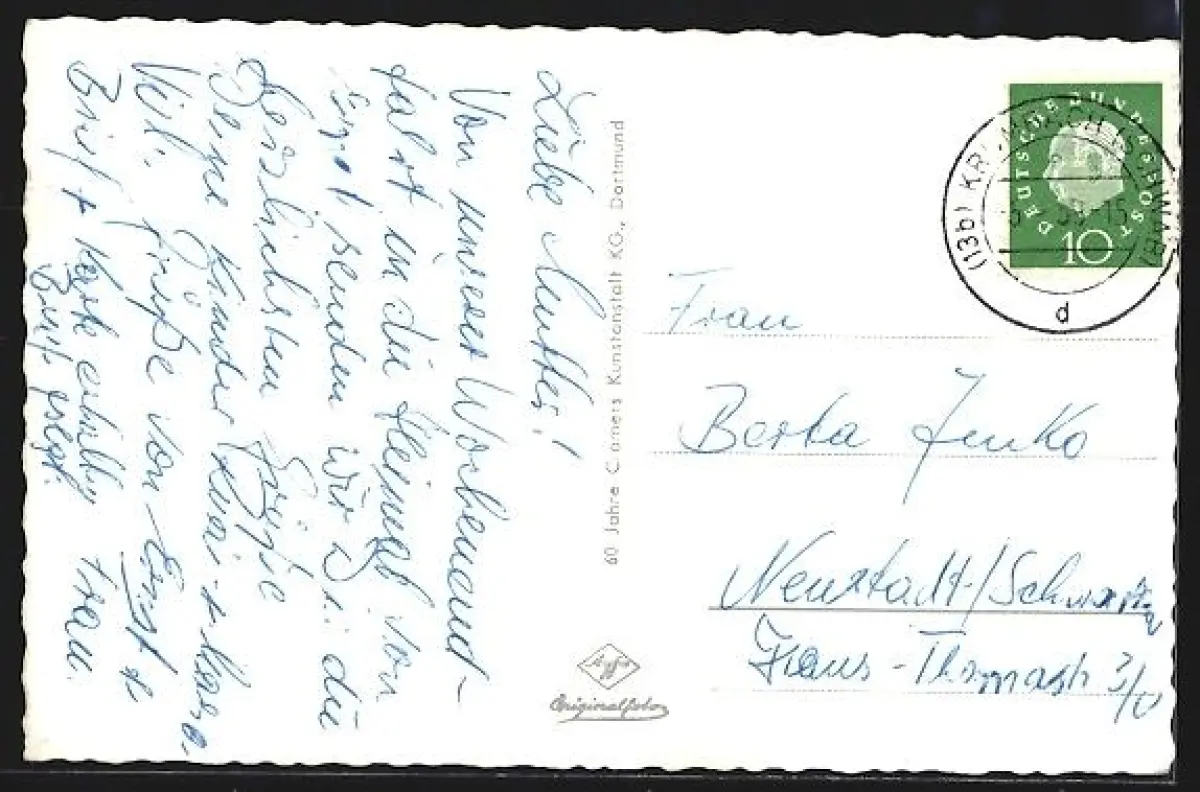 Liebe Mutter!
Von unserer Wochenend-
fahrt in die Heimat von
Ernst senden wir Dir die
herzlichsten Grüße
Deine Kinder
Viele Grüße von Ernst &
Brief & Karte erhalten
Brief folgt.
Frau
60 Jahre Cramers Kunstanstalt KG., Dortmund
Agfa
Originalfoto
DEUTSCHE BUNDESPOST
10
(13b) KRUMBACH (SCHWAB)
d
Frau
Berta Jenko
Neustadt/Schwarzw
Franz-Thomastr 3/0